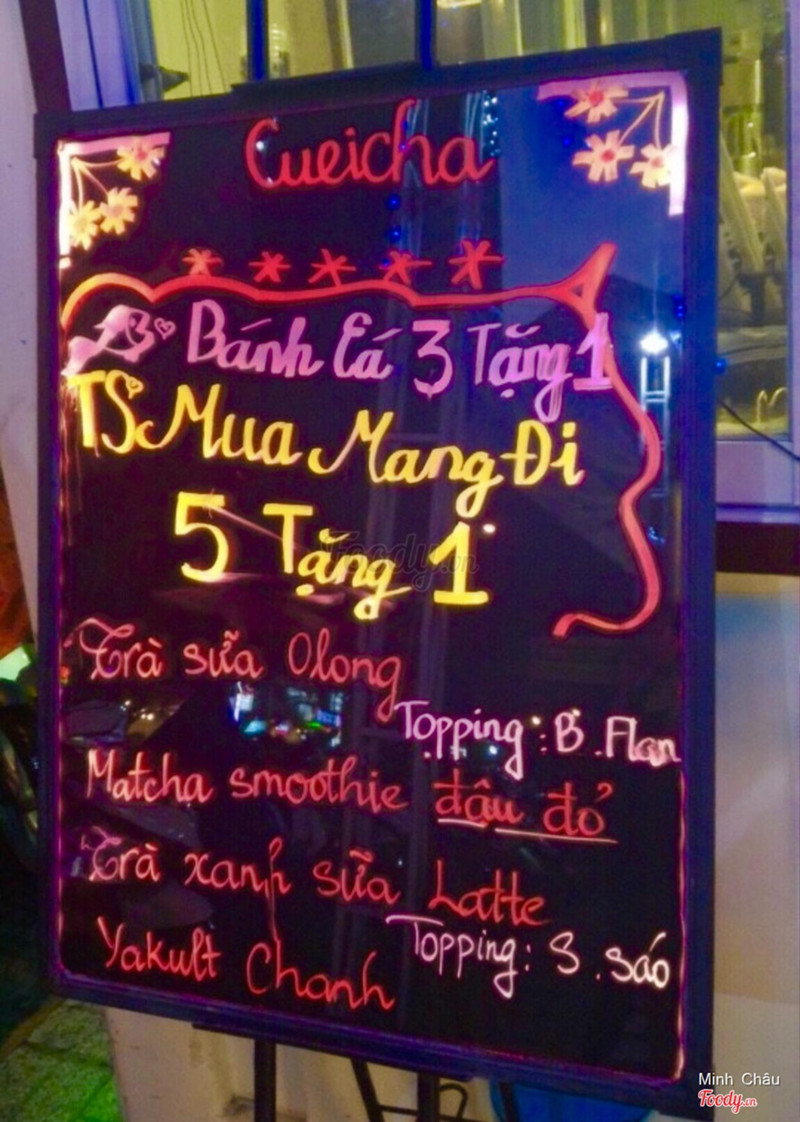 Cueicha
Bánh Cá 3 Tặng 1
TS Mua Mang Đi
5 Tặng 1
Trà sữa Olong
Topping: B. Flan
Matcha smoothie đậu đỏ
Trà xanh sữa Latte
Topping: S. Sáo
Yakult Chanh
Foody.vn
Minh Châu
Foody.vn